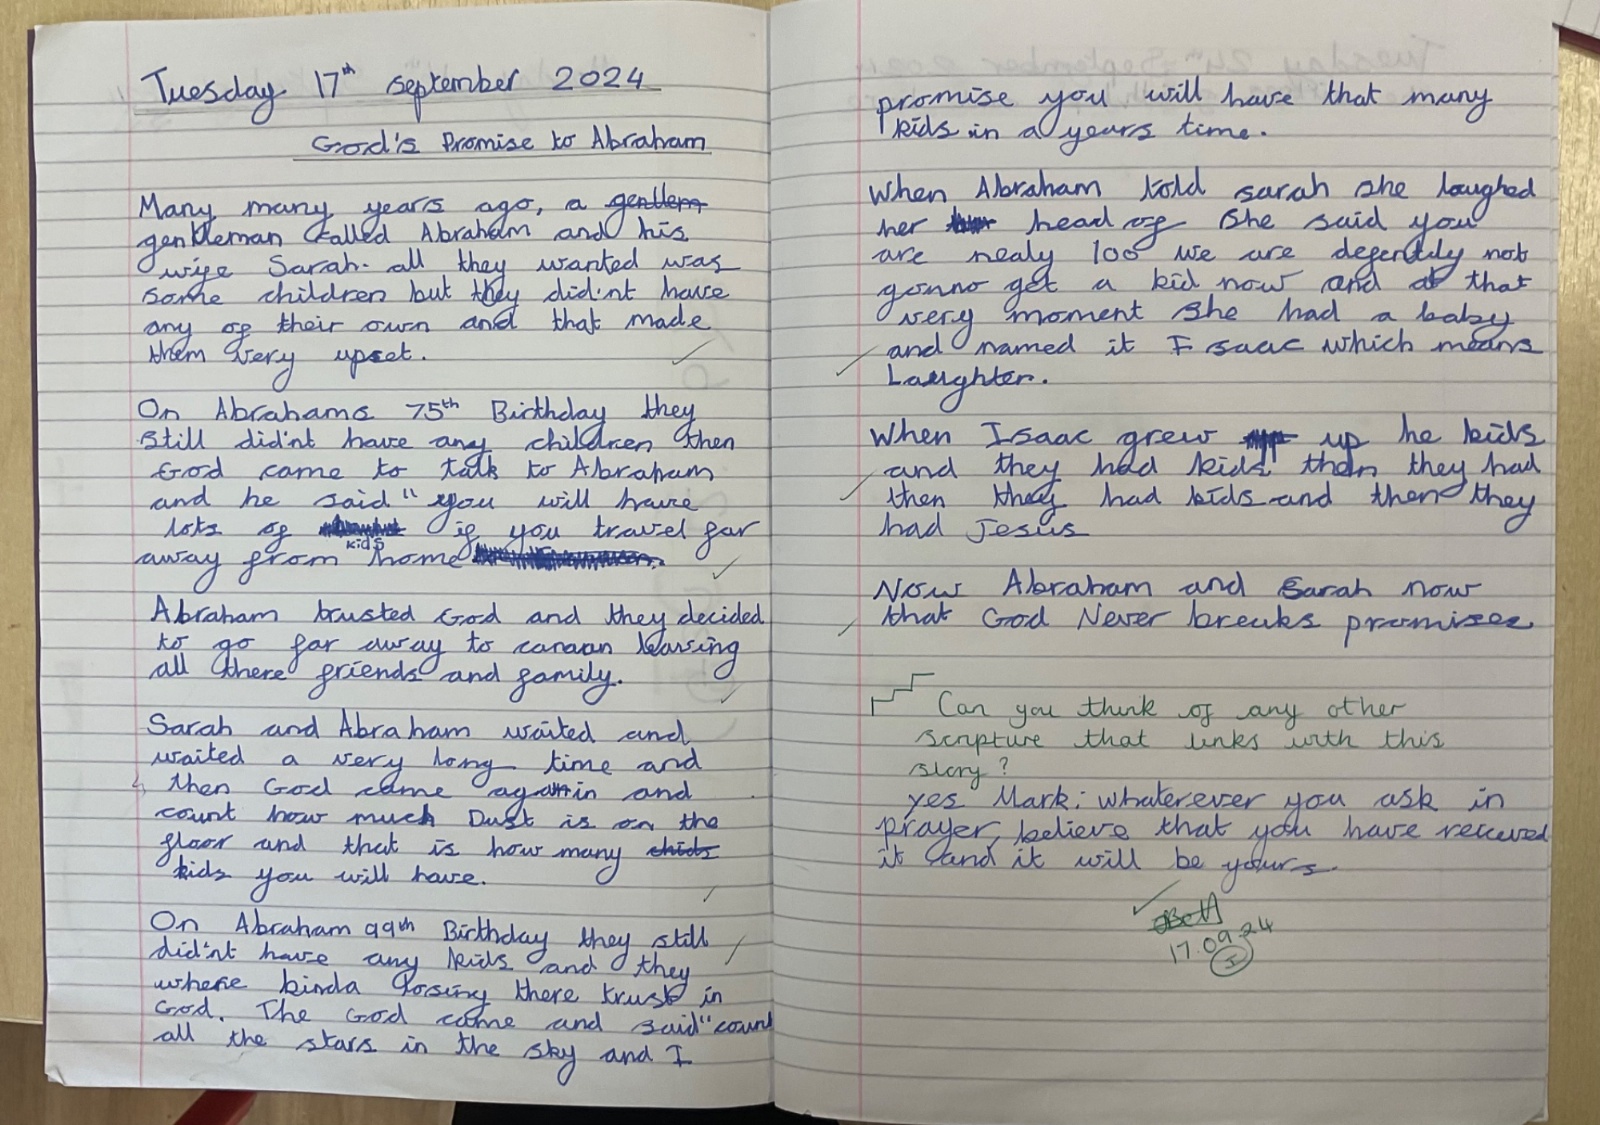 Tuesday 17th september 2024
God's Promise to Abraham
Many many years ago, a gentlem
gentleman called Abraham and his
wife Sarah. all they wanted was
some children but they did'nt have
any of their own and that made
them very upset.
On Abrahams 75th Birthday they
still did'nt have any children then
God came to talk to Abraham
and he said " you will have
lots of kids if you travel far
away from home
Abraham trusted God and they decided
to go far away to canaan leaving
all there friends and family.
Sarah and Abraham waited and
waited a very long time and
then God came again and
count how much Dust is on the
floor and that is how many chids
kids you will have.
On Abraham 99th Birthday they still
did'nt have any kids and they
where kinda losing there trust in
God. The God came and said "count
all the stars in the sky and I
promise you will have that many
kids in a years time.
When Abraham told sarah she laughed
her head of She said you
are nealy 100 we are defently not
gonno get a kid now and at that
very moment She had a baby
and named it Isaac which means
Laughter.
When Isaac grew up he kids
and they had kids then they had
then they had kids and then they
had Jesus
Now Abraham and Sarah now
that God Never breaks promises
Can you think of any other
scripture that links with this
story?
yes Mark: whaterever you ask in
prayer, believe that you have received
it and it will be yours.
17.09.24
I